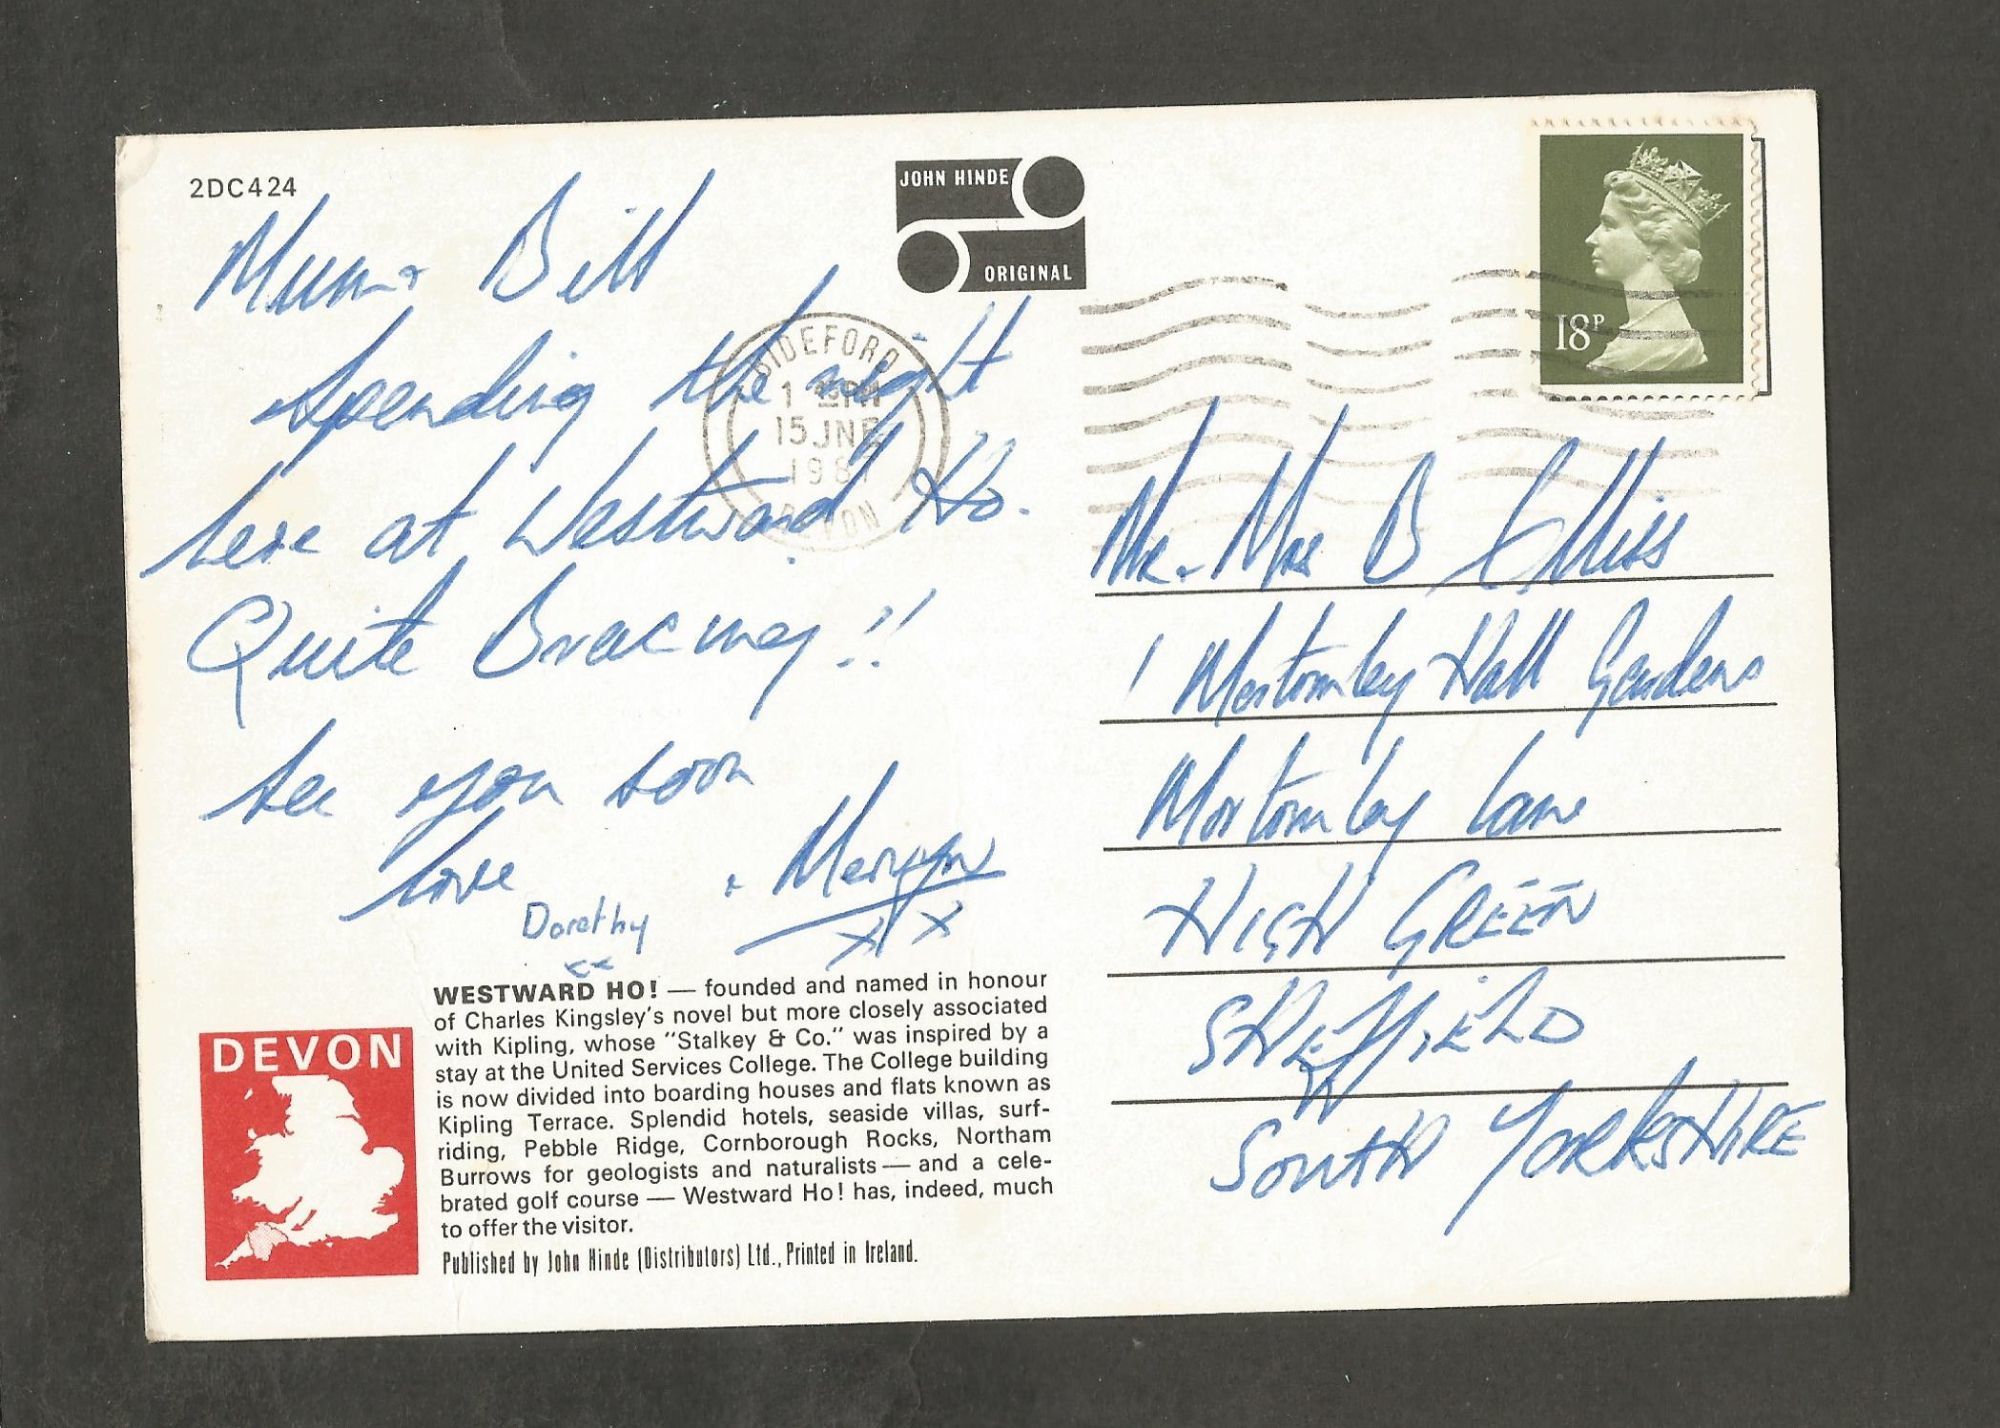 2DC424
JOHN HINDE
ORIGINAL
18P
BIDEFORD
15 JNE
198
DEVON
Mum + Bill
Spending the night
here at Westward Ho.
Quite Bracing!!
See you soon
Love
Dorothy
+ Mervyn
x x
Mr. Mrs B Ellis
1 Mortomley Hall Gardens
Mortomley Lane
HIGH GREEN
SHEFFIELD
SOUTH YORKSHIRE
DEVON
WESTWARD HO! — founded and named in honour
of Charles Kingsley's novel but more closely associated
with Kipling, whose "Stalkey & Co." was inspired by a
stay at the United Services College. The College building
is now divided into boarding houses and flats known as
Kipling Terrace. Splendid hotels, seaside villas, surf-
riding, Pebble Ridge, Cornborough Rocks, Northam
Burrows for geologists and naturalists — and a cele-
brated golf course — Westward Ho! has, indeed, much
to offer the visitor.
Published by John Hinde (Distributors) Ltd., Printed in Ireland.